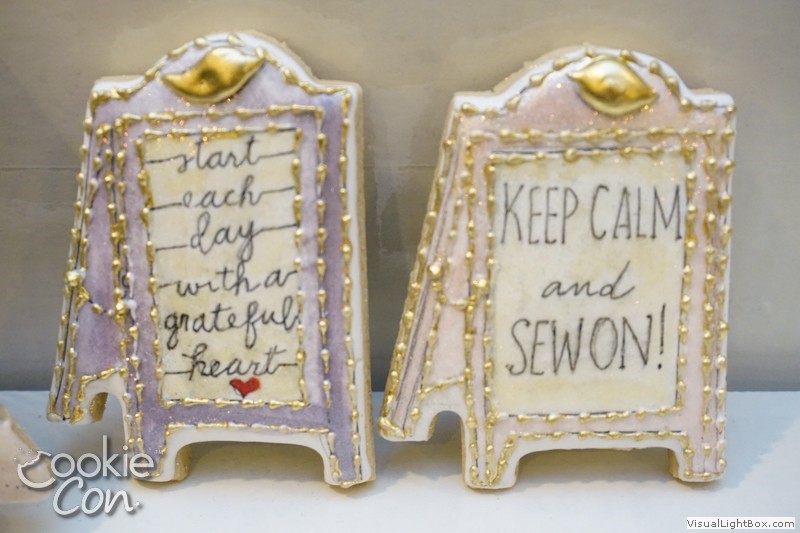 start
each
day
with a
grateful
heart
KEEP CALM
and
SEW ON!
Cookie
Con
VisualLightBox.com